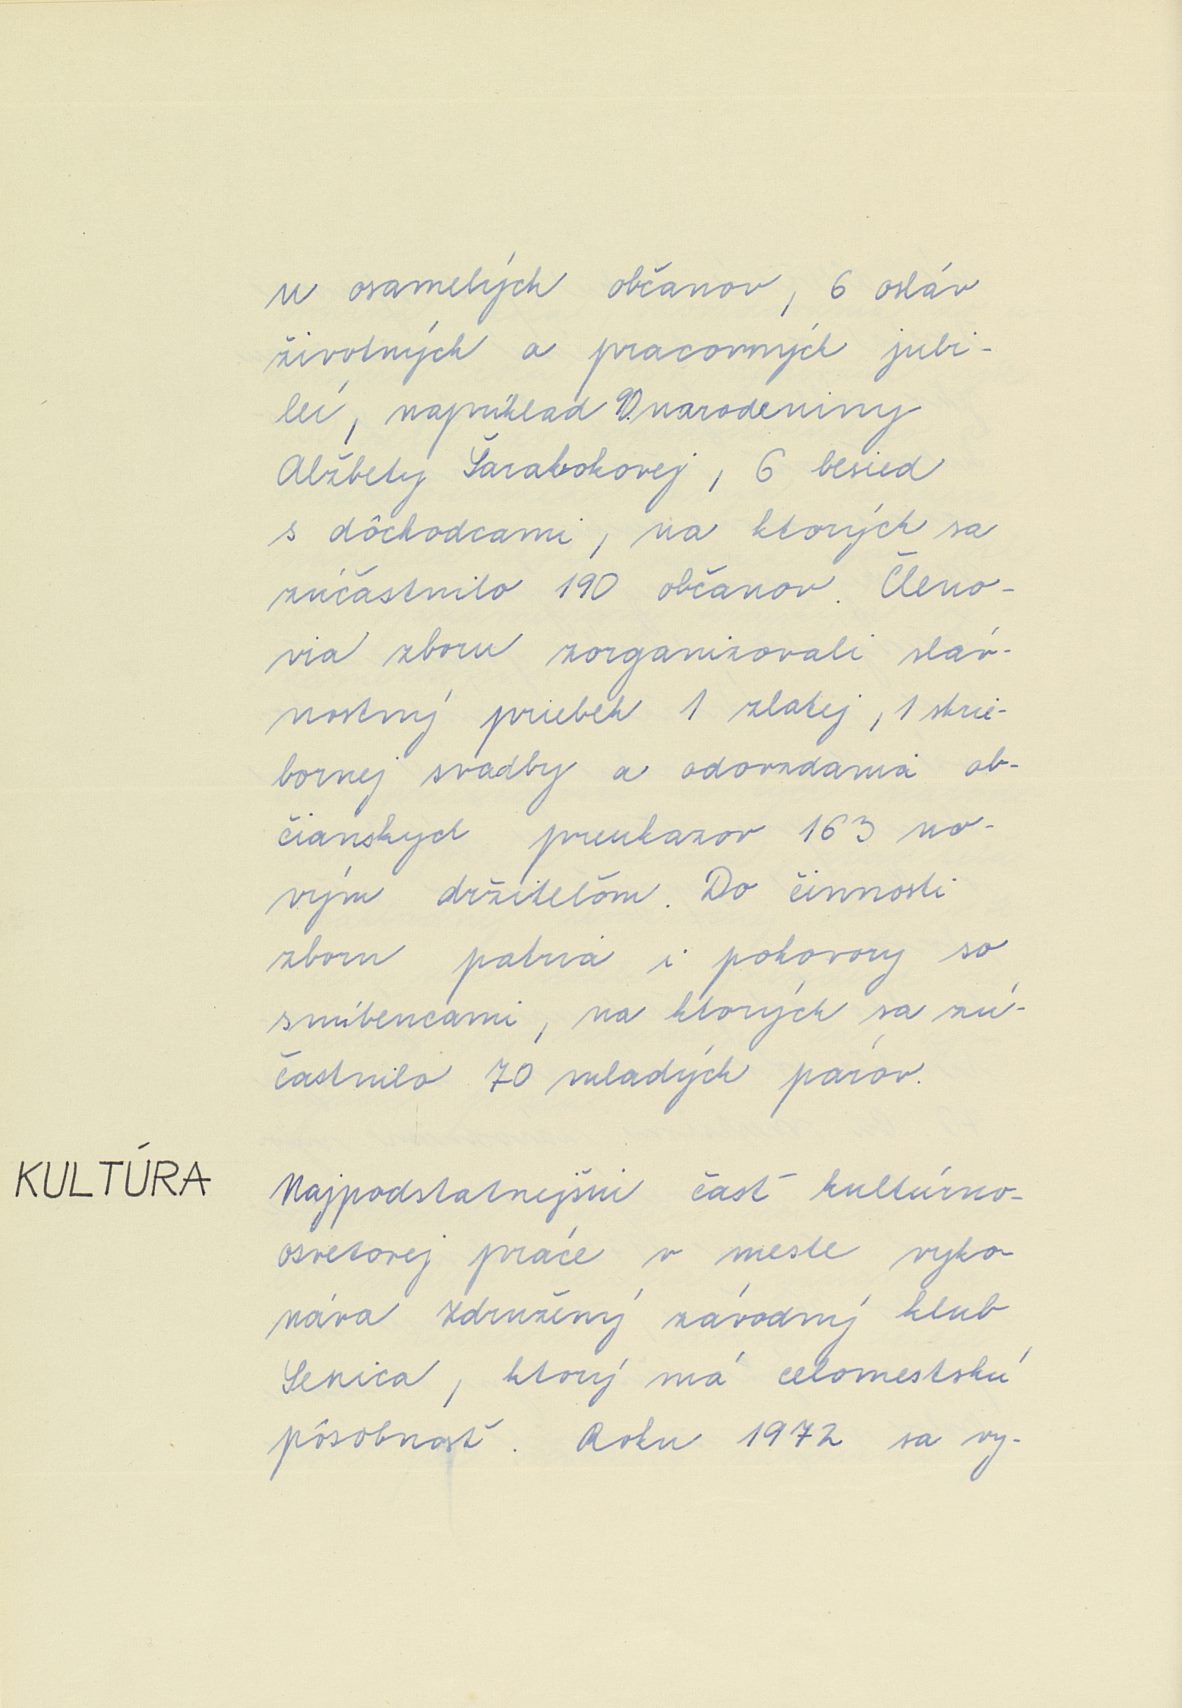 u osamelých občanov, 6 osláv
životných a pracovných jubi-
leí, napríklad 90. narodeniny
Alžbety Šarabokovej, 6 besied
s dôchodcami, na ktorých sa
zúčastnilo 190 občanov. Členo-
via zboru zorganizovali sláv-
nostný priebeh 1 zlatej, 1 strie-
bornej svadby a odovzdania ob-
čianskych preukazov 163 no-
vým držiteľom. Do činnosti
zboru patria i pohovory so
snúbencami, na ktorých sa zú-
častnilo 70 mladých párov.
KULTÚRA
Najpodstatnejšiu časť kultúrno-
osvetovej práce v meste vyko-
náva Združený závodný klub
Senica, ktorý má celomestskú
pôsobnosť. Roku 1972 sa vy-